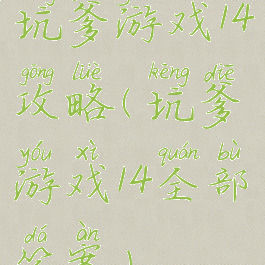 坑爹游戏14
gōng lüè kēng diē
攻略(坑爹
yóu xì quán bù
游戏14全部
dá àn
答案)